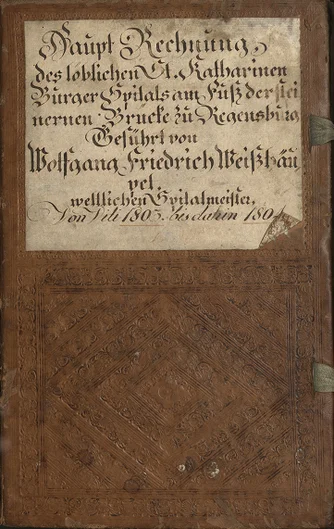 Haupt Rechnung,
des löblichen St. Katharinen
Bürger Spitals am Fuß der stei
nernen Brucke zu Regensburg
Geführt von
Wolfgang Friedrich Weißhäu
pel,
weltlichen Spitalmeister,
Von Viti 1803. bis dahin 1804.